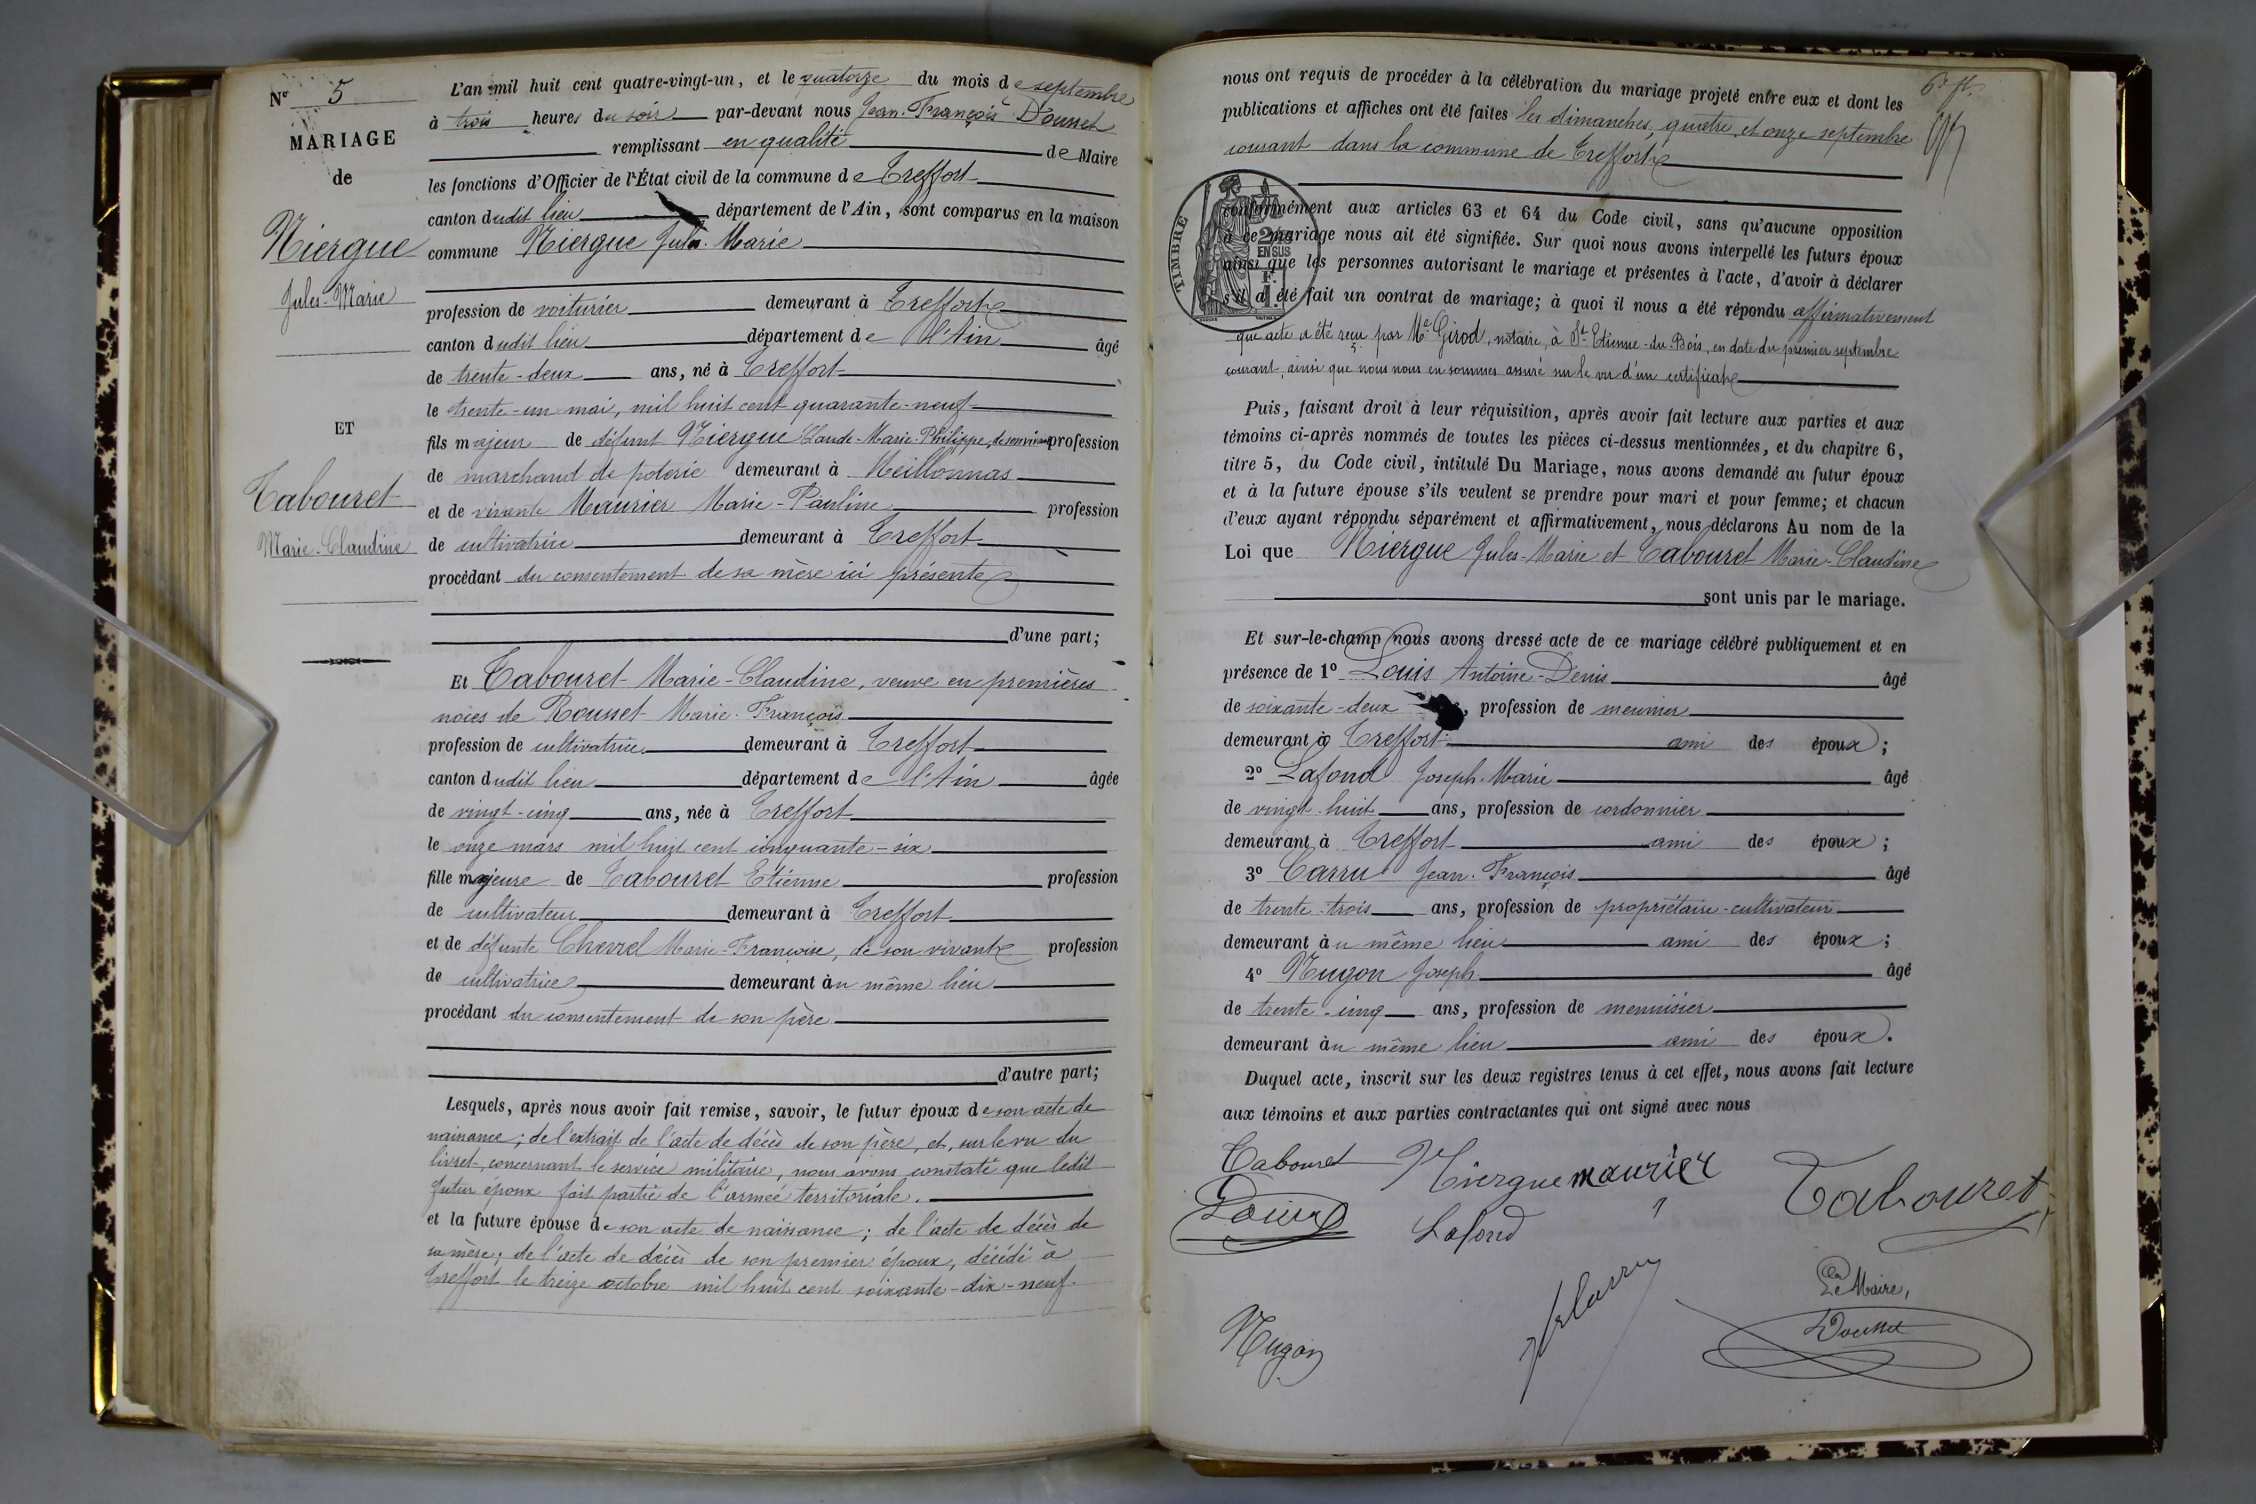 Nº 5
MARIAGE
de
Niergue
Jules-Marie
ET
Tabouret
Marie-Claudine
L'an mil huit cent quatre-vingt-un, et le quatorze du mois de septembre
à trois heures du soir par-devant nous Jean-François Dousset
remplissant en qualité de Maire
les fonctions d'Officier de l'État civil de la commune de Treffort
canton dudit lieu département de l'Ain, sont comparus en la maison
commune Niergue Jules-Marie
profession de voiturier demeurant à Treffort
canton dudit lieu département de l'Ain âgé
de trente-deux ans, né à Treffort
le trente-un mai, mil huit cent quarante-neuf
fils majeur de défunt Niergue Claude-Marie-Philippe, de son vivant profession
de marchand de poterie demeurant à Meillonnas
et de vivante Maurier Marie-Pauline profession
de cultivatrice demeurant à Treffort
procédant du consentement de sa mère ici présente
d'une part;
Et Tabouret Marie-Claudine, veuve en premières
noces de Rousset Marie-François
profession de cultivatrice demeurant à Treffort
canton dudit lieu département de l'Ain âgée
de vingt-cinq ans, née à Treffort
le onze mars mil huit cent cinquante-six
fille majeure de Tabouret Etienne profession
de cultivateur demeurant à Treffort
et de défunte Chevrel Marie-Françoise, de son vivant profession
de cultivatrice demeurant au même lieu
procédant du consentement de son père
d'autre part;
Lesquels, après nous avoir fait remise, savoir, le futur époux de son acte de
naissance; de l'extrait de l'acte de décès de son père, et, sur le vu du
livret, concernant le service militaire, nous avons constaté que ledit
futur époux fait partie de l'armée territoriale.
et la future épouse de son acte de naissance; de l'acte de décès de
sa mère; de l'acte de décès de son premier époux, décédé à
Treffort le treize octobre mil huit cent soixante-dix-neuf.
nous ont requis de procéder à la célébration du mariage projeté entre eux et dont les
publications et affiches ont été faites les dimanches, quatre et onze septembre
courant dans la commune de Treffort
TIMBRE
2/10
EN SUS
F.
conformément aux articles 63 et 64 du Code civil, sans qu'aucune opposition
à ce mariage nous ait été signifiée. Sur quoi nous avons interpellé les futurs époux
ainsi que les personnes autorisant le mariage et présentes à l'acte, d'avoir à déclarer
s'il a été fait un contrat de mariage; à quoi il nous a été répondu affirmativement
que acte a été reçu par Me Girod, notaire, à St-Etienne-du-Bois, en date du premier septembre
courant, ainsi que nous nous en sommes assuré sur le vu d'un certificat
Puis, faisant droit à leur réquisition, après avoir fait lecture aux parties et aux
témoins ci-après nommés de toutes les pièces ci-dessus mentionnées, et du chapitre 6,
titre 5, du Code civil, intitulé Du Mariage, nous avons demandé au futur époux
et à la future épouse s'ils veulent se prendre pour mari et pour femme; et chacun
d'eux ayant répondu séparément et affirmativement, nous déclarons Au nom de la
Loi que Niergue Jules-Marie et Tabouret Marie-Claudine
sont unis par le mariage.
Et sur-le-champ nous avons dressé acte de ce mariage célébré publiquement et en
présence de 1º Louis Antoine-Denis âgé
de soixante-deux, profession de meunier
demeurant à Treffort ami des époux;
2º Lafond Joseph-Marie âgé
de vingt-huit ans, profession de cordonnier
demeurant à Treffort ami des époux;
3º Carru Jean-François âgé
de trente-trois ans, profession de propriétaire-cultivateur
demeurant au même lieu ami des époux;
4º Nugon Joseph âgé
de trente-cinq ans, profession de menuisier
demeurant au même lieu ami des époux.
Duquel acte, inscrit sur les deux registres tenus à cet effet, nous avons fait lecture
aux témoins et aux parties contractantes qui ont signé avec nous
Tabouret Niergue maurier Tabouret
Louis Lafond
Le Maire,
Nugon Dousset